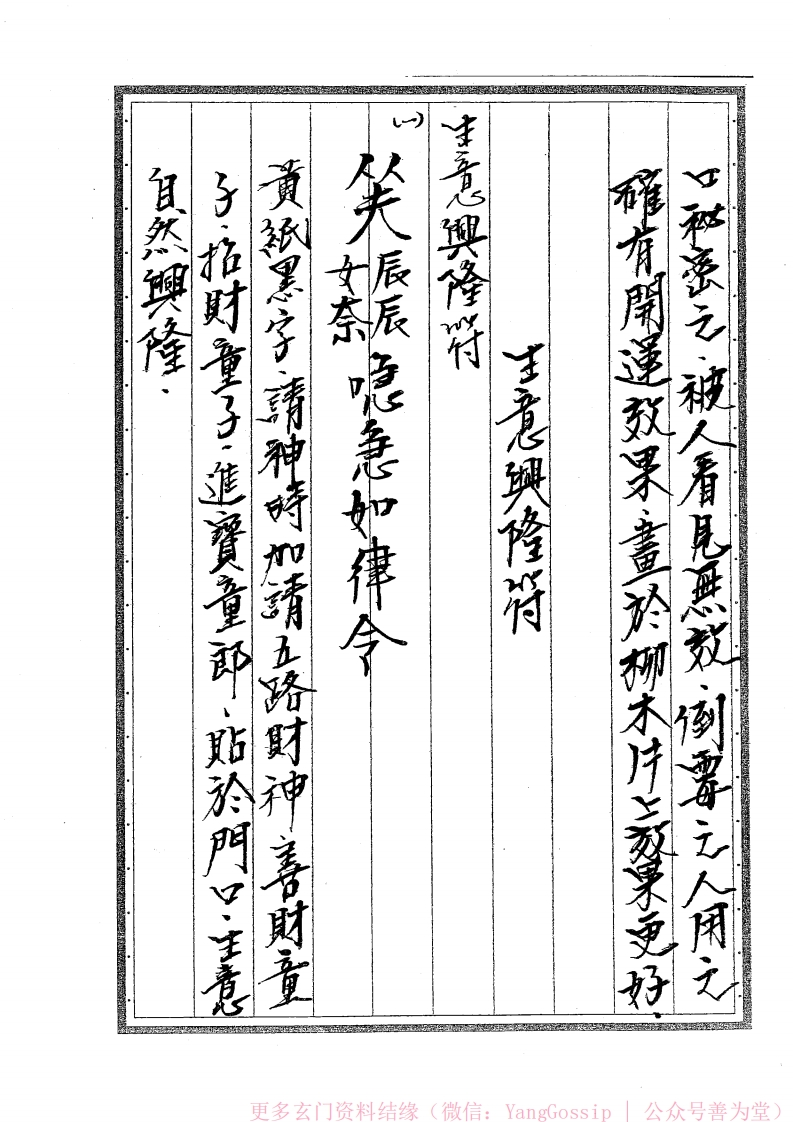 口秘密之、被人看見無效、倒霉之人用之
確有開運效果、畫於柳木片上效果更好、
生意興隆符
生意興隆符
(一)
辰辰
女奈
唿急如律令
黃紙黑字、請神時加請五路財神、善財童
子、招財童子、進寶童郎、貼於門口、生意
自然興隆、
更多玄门资料结缘（微信：YangGossip | 公众号善为堂）